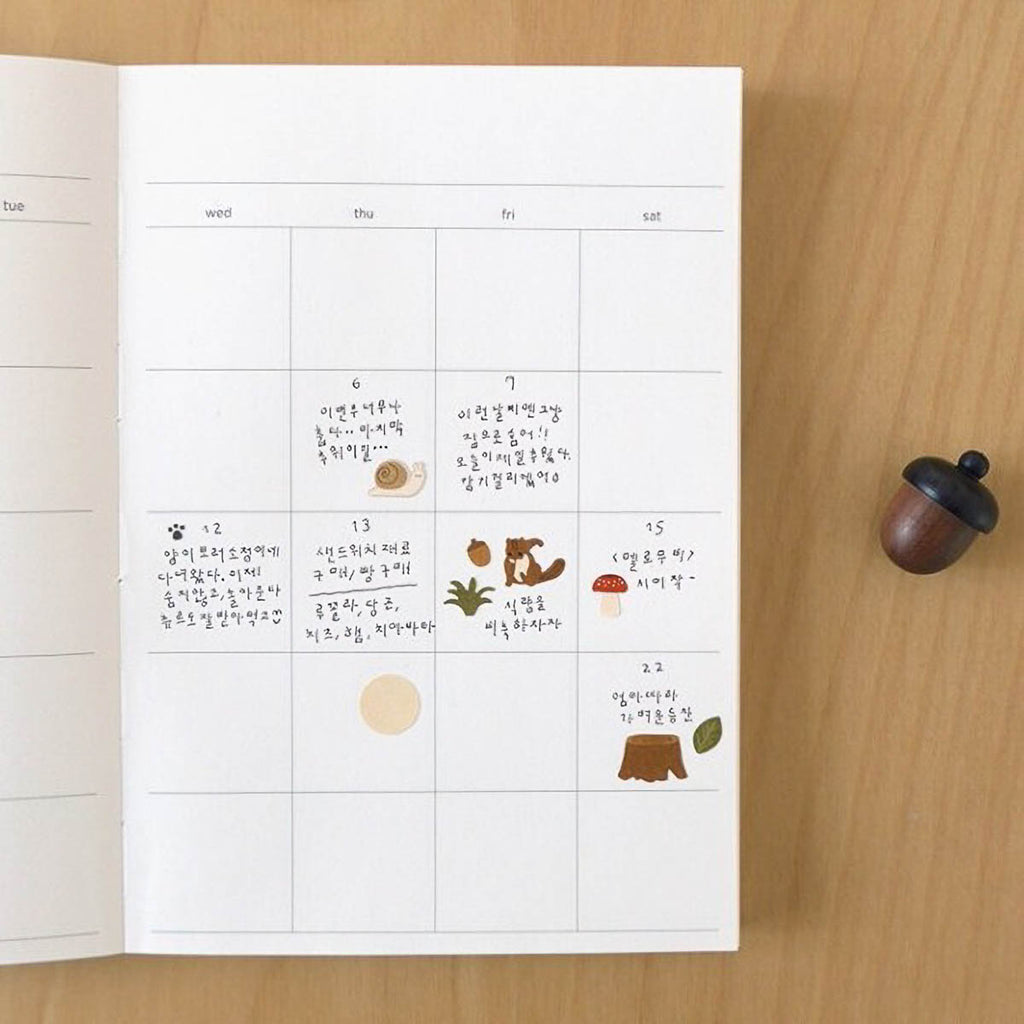 tue
wed
thu
fri
sat
6
이번주 너무나
춥다.. 마지막
추위이길...
7
이런 날씨엔 그냥
집으로 숨어!!
오늘이 제일 추웠다.
감기 걸리겠어
12
양이 보러 소정이네
다녀왔다. 이제
숨지않고, 놀아준다
츄르도 잘 받아먹고
13
샌드위치 재료
구매/ 빵 구매
루꼴라, 당근,
치즈, 햄, 치아바타
식량을
비축하자
15
<멜로무비>
시이작~
22
엄마 따라
가벼운 등산